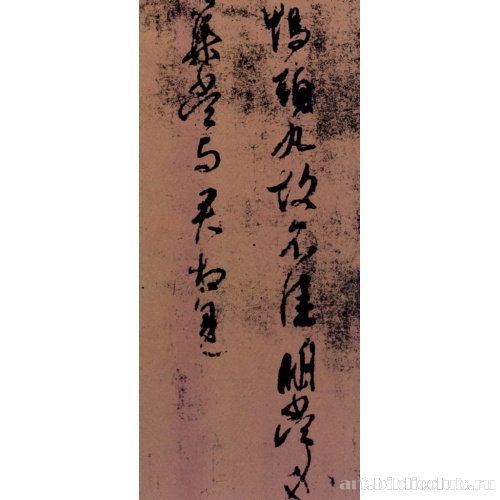 鴨頭丸故不佳明當必
集當與君相見
art.biblioclub.ru